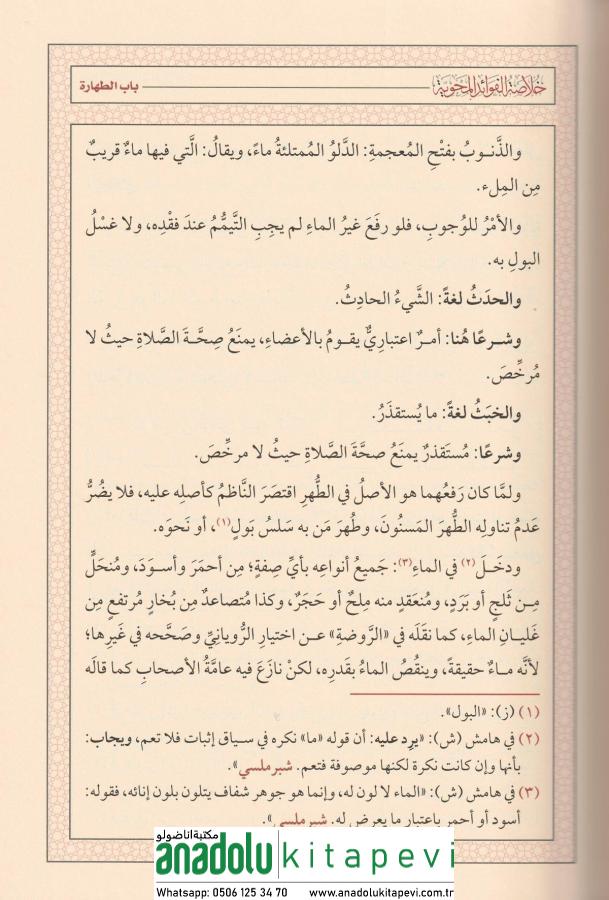 خلاصة الفوائد المحوية
باب الطهارة
والذَّنوبُ بفتْحِ المُعجمةِ: الدَّلوُ المُمتلئةُ ماءً، ويقالُ: الَّتي فيها ماءٌ قريبٌ
مِن المِلء.
والأمْرُ للوُجوبِ، فلو رفَعَ غيرُ الماءِ لم يجِبِ التَّيمُّمُ عندَ فقْدِه، ولا غسْلُ
البولِ به.
والحدَثُ لغةً: الشَّيءُ الحادِثُ.
وشرعًا هُنا: أمرٌ اعتباريٌّ يقومُ بالأعضاءِ، يمنَعُ صِحَّةَ الصَّلاةِ حيثُ لا
مُرخِّصَ.
والخبَثُ لغةً: ما يُستقذَرُ.
وشرعًا: مُستَقذرٌ يمنَعُ صحَّةَ الصَّلاةِ حيثُ لا مرخِّصَ.
ولمَّا كان رَفعُهما هو الأصلُ في الطُّهرِ اقتصَرَ النَّاظمُ كأصلِه عليه، فلا يضُرُّ
عَدمُ تناولِه الطُّهرَ المَسنُونَ، وطُهرَ مَن به سَلسُ بَولٍ(١)، أو نَحوَه.
ودخَلَ(٢) في الماءِ(٣): جَميعُ أنواعِه بأيِّ صِفةٍ؛ مِن أحمَرَ وأسوَدَ، ومُنحَلٍّ
مِن ثَلجٍ أو بَرَدٍ، ومُنعَقدٍ منه مِلحٌ أو حَجَرٌ، وكذا مُتصاعدٌ مِن بُخارٍ مُرتفعٍ مِن
غَليانِ الماءِ، كما نقَلَه في «الرَّوضةِ» عن اختيارِ الرُّويانِيِّ وصَحَّحه في غَيرِها؛
لأنَّه ماءٌ حقيقةً، وينقُصُ الماءُ بقَدرِه، لكنْ نازَعَ فيه عامَّةُ الأصحابِ كما قالَه
(١) (ز): «البول».
(٢) في هامش (ش): «يرد عليه: أن قوله «ما» نكره في سياق إثبات فلا تعم، ويجاب:
بأنها وإن كانت نكرة لكنها موصوفة فتعم. شبرملسي».
(٣) في هامش (ش): «الماء لا لون له، وإنما هو جوهر شفاف يتلون بلون إنائه، فقوله:
أسود أو أحمر باعتبار ما يعرض له. شبرملسي».
مكتبة اناضولو
anadolu kitapevi
Whatsapp: 0506 125 34 70 www.anadolukitapevi.com.tr